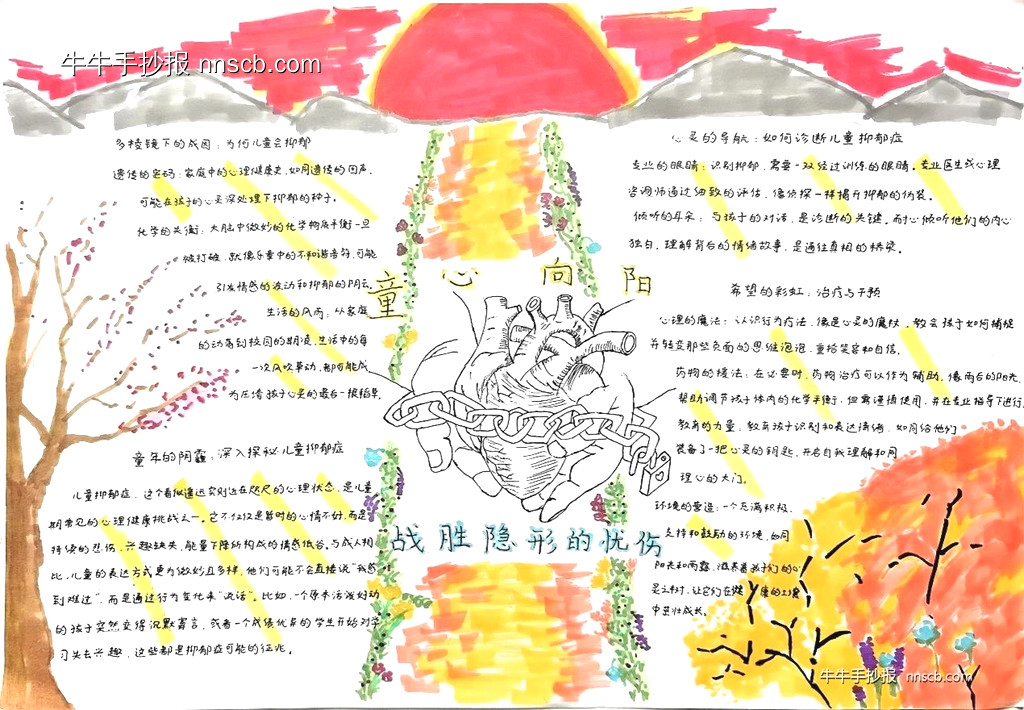 牛牛手抄报 nnscb.com
多棱镜下的成因：为何儿童会抑郁
遗传的密码：家庭中的心理健康史，如同遗传的回声，
可能在孩子的心灵深处埋下抑郁的种子。
化学的失衡：大脑中微妙的化学物质平衡一旦
被打破，就像乐章中的不和谐音符，可能
引发情感的波动和抑郁的阴云。
生活的风雨：从家庭
的动荡到校园的期凌，生活中的每
一次风吹草动，都可能成
为压倒孩子心灵的最后一根稻草。
童年的阴霾：深入探秘儿童抑郁症
儿童抑郁症，这个看似遥远实则近在咫尺的心理状态，是儿童
期常见的心理健康挑战之一。它不仅仅是暂时的心情不好，而是
持续的悲伤、兴趣缺失、能量下降所构成的情感低谷。与成人相
比，儿童的表达方式更为微妙且多样，他们可能不会直接说“我感
到难过”，而是通过行为变化来“说话”。比如，一个原本活泼好动
的孩子突然变得沉默寡言，或者一个成绩优异的学生开始对学
习失去兴趣，这些都是抑郁症可能的征兆。
童心向阳
战胜隐形的忧伤
心灵的导航：如何诊断儿童抑郁症
专业的眼睛：识别抑郁，需要一双经过训练的眼睛。专业医生或心理
咨询师通过细致的评估，像侦探一样揭开抑郁的伪装。
倾听的耳朵：与孩子的对话，是诊断的关键。耐心倾听他们的内心
独白，理解背后的情绪故事，是通往真相的桥梁。
希望的彩虹：治疗与干预
心理的魔法：认识行为疗法，像是心灵的魔杖，教会孩子如何捕捉
并转变那些负面的思维泡泡，重拾笑容和自信。
药物的援法：在必要时，药物治疗可以作为辅助，像雨后的阳光，
帮助调节孩子体内的化学平衡，但需谨慎使用，并在专业指导下进行。
教育的力量：教育孩子识别和表达情绪，如同给他们
装备了一把心灵的钥匙，开启自我理解和同
理心的大门。
环境的营造：一个充满积极、
支持和鼓励的环境，如同
阳光和雨露，滋养着孩子们的心
灵之树，让它们在健康的土壤
中茁壮成长。
牛牛手抄报 nnscb.com